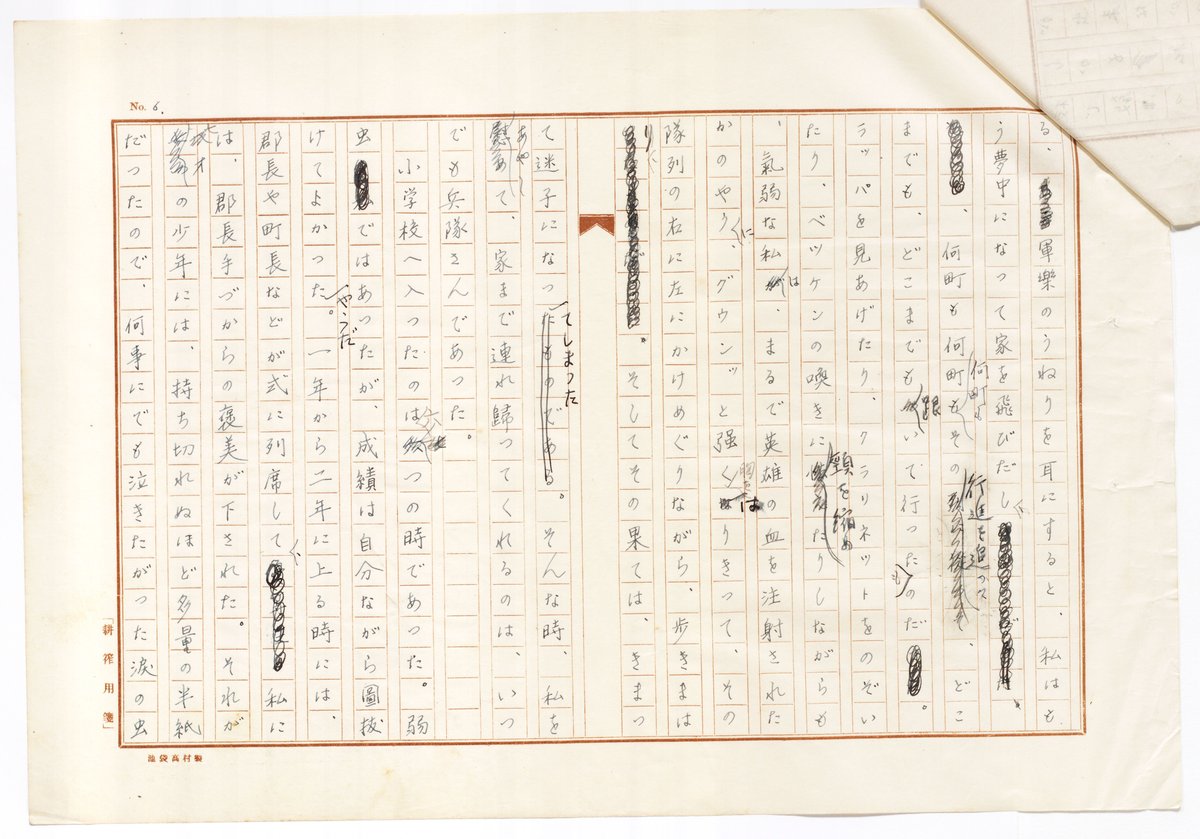 No. 6.
る、軍樂のうねりを耳にすると、私はも
う夢中になって家を飛びだし、
何町も何町も何町もその行進を追つて、どこ
までも、どこまでも跟いて行ったものだ。
ラッパを見あげたり、クラリネットをのぞい
たり、ベツケンの喚きに頸を縮めたりしながらも
、氣弱な私は、まるで英雄の血を注射された
かのやうに、グウンッと强く胸をはりきって、その
隊列の右に左にかけめぐりながら、歩きまは
り。そしてその果ては、きまつ
て迷子になってしまつた。そんな時、私を
あやして、家まで連れ歸つてくれるのは、いつ
でも兵隊さんであった。
小学校へ入つたのは六つの時であつた。弱
虫ではあつたが、成績は自分ながら圖拔
けてよかつたやうだ。一年から二年に上る時には、
郡長や町長などが式に列席して、私に
は、郡長手づからの褒美が下された。それが
の少年には、持ち切れぬほど多量の半紙
だつたので、何事にでも泣きたがつた淚の虫
「耕筰用箋」
池袋髙村製